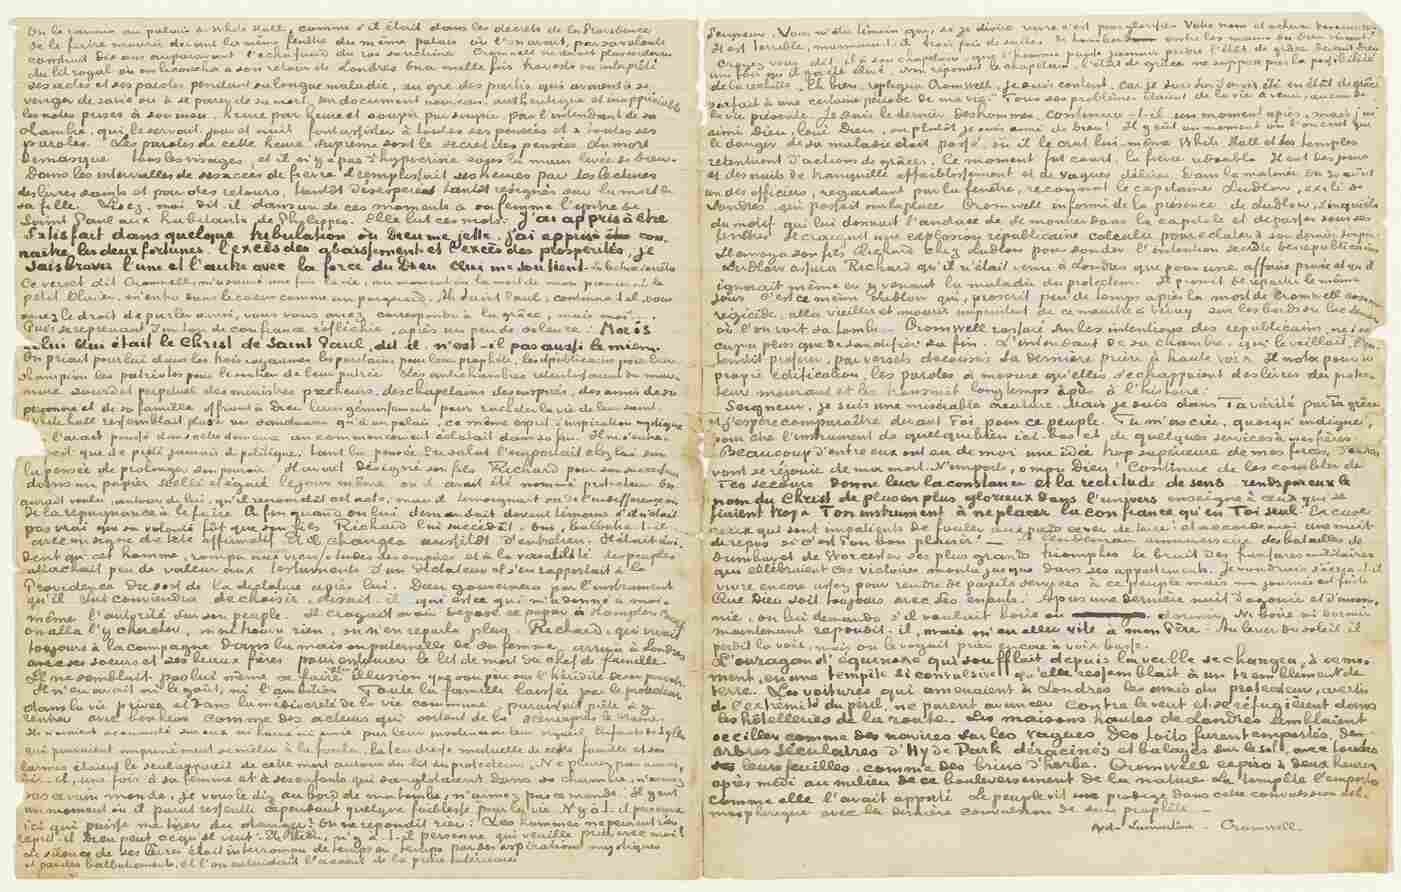 On le ramena au palais de White Hall, comme s'il était dans les décrets de la Providence
de le faire mourir devant la même fenêtre du même palais où l'on avait, par sa volonté
construit dix ans auparavant l'échafaud du roi
du lit royal où on le coucha à son retour de Londres
ses actes et ses paroles pendant sa longue maladie, au gré des partis qui avaient à se
venger de sa vie ou à se parer de sa mort. Un document nouveau, authentique et
les notes prises à son insu, heure par heure et soupir par soupir, par l'intendant de sa
chambre, qui le servait jour et nuit à toutes ses pensées et à toutes ses
paroles. Les paroles de cette heure suprême sont le secret des pensées. La mort
démasque tous les visages, et il n'y a pas d'hypocrisie sous la main levée de Dieu.
Dans les intervalles de ses accès de fièvre, il remplissait ses heures par des lectures
des livres saints et par des retours, tantôt désespérés tantôt résignés sur la mort de
sa fille. Lisez-moi, dit-il dans un de ces moments à sa femme l'épître de
Saint Paul aux habitants de Philippes. Elle lut ces mots: J'ai appris à être
satisfait dans quelque tribulation où Dieu me jette. j'ai appris à con-
naître les deux fortunes, l'excès des abaissements et l'excès des prospérités, je
sais braver l'une et l'autre avec la force du Dieu qui me soutient.
Ce verset dit Cromwell, m'a sauvé une fois la vie, au moment où la mort de mon premier né le
petit Olivier, m'entra dans le coeur comme un poignard. Ah Saint Paul, continua-t-il, vous
avez le droit de parler ainsi, vous vous avez correspondu à la grâce, mais moi...
Puis se reprenant d'un ton de confiance réfléchie, après un peu de silence: Mais
celui qui était le Christ de Saint Paul, dit-il, n'est-il pas aussi le mien.
On priait pour lui dans les trois royaumes les puritains pour leur prophète, les républicains pour leur
champion les patriotes pour le soutien de leur patrie. Les antichambres retentissaient du mur-
mure sourd et perpétuel des ministres prêcheurs, des chapelains des inspirés, des amis de sa
personne et de sa famille offrant à Dieu leurs gémissements pour racheter la vie de leur saint.
White hall ressemblait plus à un sanctuaire qu'à un palais, ce même esprit d'inspiration mystique
l'avait poussé dans cette demeure au commencement éclatait dans sa fin. Il ne s'entre-
que de piété jamais de politique, tant la pensée du salut l'emportait chez lui sur
la pensée de prolonger son pouvoir. Il avait désigné son fils Richard pour son successeur
dans un papier scellé et égaré le jour même où il avait été nommé protecteur. On
aurait voulu, autour de lui, qu'il renouvelât cet acte, mais il témoignait ou de l'indifférence ou
de la répugnance à le faire. Enfin quand on lui demandait devant témoins s'il n'était
pas vrai que sa volonté fût que son fils Richard lui succédât. Oui, balbutia-t-il
avec un signe de tête affirmatif. Et il changea aussitôt d'entretien. Il était évi-
dent que cet homme, rompu aux vicissitudes des empires et à la versatilité des peuples
attachait peu de valeur aux testaments d'un dictateur et s'en rapportait à la
Providence du sort de la dictature après lui. Dieu gouvernera par l'instrument
qu'il lui conviendra de choisir, disait-il, qui est-ce qui m'a donné à moi-
même l'autorité sur son peuple. Il croyait avoir déposé ce papier à Hampton,
on alla l'y chercher, on ne trouva rien, on n'en reparla plus. Richard, qui vivait
toujours à la campagne dans la maison paternelle de sa femme, arriva à Londres
avec ses soeurs et ses beaux frères pour entourer le lit de mort du chef de famille
Il ne semblait pas lui même se faire illusion
Il n'en avait ni le goût, ni l'ambition. Toute la famille laissée par le protecteur
dans la vie privée et dans la médiocrité de la vie commune, paraissait prête à y
rentrer avec bonheur comme des acteurs qui sortent de la scène après le drame.
qui pouvaient impunément se mêler à la foule, la tendresse mutuelle de cette famille et ses
larmes étaient le seul appareil de cette mort autour du lit du protecteur. Ne pleurez pas ainsi,
dit-il, une fois à sa femme et à ses enfants qui sanglotaient dans sa chambre, n'aimez
pas ce vain monde, je vous le dis au bord de ma tombe, n'aimez pas ce monde. Il y eut
un moment où il parut ressentir cependant quelque faiblesse pour la vie. N'y a-t-il personne
ici qui puisse me tirer du danger? On ne répondit rien: Les hommes ne peuvent rien,
reprit-il Dieu peut ce qu'il veut. n'y a-t-il personne qui veuille prier avec moi?
Le silence de ses lèvres était interrompu de temps en temps par des aspirations mystiques
et par des balbutiements, où l'on entendait l'accent de la prière intérieure
Seigneur, Vous m'êtes témoin que, si je désire vivre c'est pour glorifier Votre nom et achever
Il est terrible, murmurait-il trois fois de suite, de tomber entre les mains du Dieu vivant!
Croyez vous dit-il à son chapelain, que l'homme puisse jamais perdre l'état de grâce devant Dieu
une fois qu'il Non répondit le chapelain, l'état de grâce ne suppose pas la possibilité
de la rechute. Eh bien, répliqua Cromwell, je suis content, car je suis sûr d'avoir été en état de grâce
parfait à une certaine période de ma vie. Tous ses problèmes étaient de la vie à venir, aucun de
la vie présente. Je suis le dernier des hommes, continua-t-il un moment après, mais j'ai
aimé Dieu, loué Dieu, ou plutôt je suis aimé de Dieu! Il y eut un moment où l'on crut que
le danger de sa maladie était passé, où il le crut lui-même White Hall et les temples
retentirent d'actions de grâces. Ce moment fut court, la fièvre redoubla. Il eut des jours
et des nuits de tranquille affaiblissement et de vagues délires. Dans la matinée du 30 août
un des officiers, regardant par la fenêtre, reconnut le capitaine Ludlow, exilé de
Londres, qui passait sur la place. Cromwell informé de la présence de Ludlow, s'inquiéta
du motif qui lui donnait l'audace de se montrer dans la capitale et de passer sous ses
fenêtres. Il craignit une explosion républicaine calculée pour éclater à son dernier soupir.
Il envoya son fils Richard chez Ludlow pour sonder l'intention secrète des républicains
Ludlow assura Richard qu'il n'était venu à Londres que pour une affaire privée et qu'il
ignorait même en y venant la maladie du protecteur. Il promit de repartir le même
jour. C'est ce même Ludlow qui, proscrit peu de temps après la mort de Cromwell comme
régicide, alla vieillir et mourir impénitent de ce meurtre à Vevey sur les bords du lac Léman
où l'on voit sa tombe. Cromwell rassuré sur les intentions des républicains, ne s'oc-
cupa plus que de sanctifier sa fin. L'intendant de sa chambre, qui le veillait, l'en-
tendit proférer, par versets décousus sa dernière prière à haute voix. Il nota pour sa
propre édification, les paroles à mesure qu'elles s'échappaient des lèvres du protec-
teur mourant et les transmit longtemps après à l'histoire.
Seigneur, je suis une misérable créature. Mais je suis dans Ta vérité par Ta grâce
et j'espère comparaître devant Toi pour ce peuple. Tu m'as créé, quoiqu'indigne,
pour être l'instrument de quelque bien ici-bas et de quelques services à mes frères.
Beaucoup d'entre eux ont eu de moi une idée trop supérieure de mes forces, d'autres
vont se réjouir de ma mort. N'importe, ô mon Dieu! Continue de les combler de
Tes secours donne leur la constance et la rectitude de sens, rends par eux le
nom du Christ de plus en plus glorieux dans l'univers enseigne à ceux qui se
fiaient trop à Ton instrument à ne placer la confiance qu'en Toi seul! Excuse
ceux qui sont impatients de fouler aux pieds ce ver de terre! et accorde-moi une nuit
de repos si c'est Ton bon plaisir! — Le lendemain anniversaire des batailles de
Dumbar et de Worcester ses plus grands triomphes, le bruit des fanfares militaires
qui célébraient ces victoires monta jusque dans ses appartements. Je voudrais s'écria-t-il
vivre encore assez pour rendre de pareils services à ce peuple mais ma journée est faite
Que Dieu soit toujours avec ses enfants! Après une dernière nuit d'agonie et d'insom-
nie, on lui demanda s'il voulait boire ou dormir. Ni boire ni dormir
maintenant répondit-il, mais m'en aller vite à mon Père. Au lever du soleil, il
perdit la voix, mais on le voyait prier encore à voix basse.
L'ouragan d'équinoxe qui soufflait depuis la veille se changea, à ce mo-
ment, en une tempête si convulsive qu'elle ressemblait à un tremblement de
terre. Les voitures qui amenaient à Londres les amis du protecteur, avertis
de l'extrémité du péril, ne purent avancer contre le vent et se réfugièrent dans
les hôtelleries de la route. Les maisons hautes de Londres semblaient
osciller comme des navires sur les vagues. Des toits furent emportés, des
arbres séculaires d'Hyde Park déracinés et balayés sur le sol, avec toutes
leurs feuilles comme des brins d'herbe. Cromwell expira à deux heures
après midi au milieu de ce bouleversement de la nature. La tempête l'emporta
comme elle l'avait apporté. Le peuple vit une prodige dans cette convulsion at-
mosphérique avec la dernière convulsion de son prophète. —
Lamartine - Cromwell.